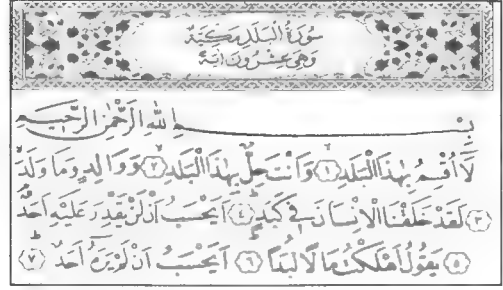 سُورَةُ الْبَلَدِ مَكِّيَّةٌ
وَهِيَ عِشْرُونَ اٰيَةً
بِسْمِ اللّٰهِ الرَّحْمٰنِ الرَّحِيْمِ
لَآ اُقْسِمُ بِهٰذَا الْبَلَدِ ﴿١﴾ وَاَنْتَ حِلٌّ بِهٰذَا الْبَلَدِ ﴿٢﴾ وَوَالِدٍ وَمَا وَلَدَ
﴿٣﴾ لَقَدْ خَلَقْنَا الْاِنْسَانَ فِيْ كَبَدٍ ﴿٤﴾ اَيَحْسَبُ اَنْ لَنْ يَقْدِرَ عَلَيْهِ اَحَدٌ
﴿٥﴾ يَقُوْلُ اَهْلَكْتُ مَالًا لُبَدًا ﴿٦﴾ اَيَحْسَبُ اَنْ لَمْ يَرَهُ اَحَدٌ ﴿٧﴾